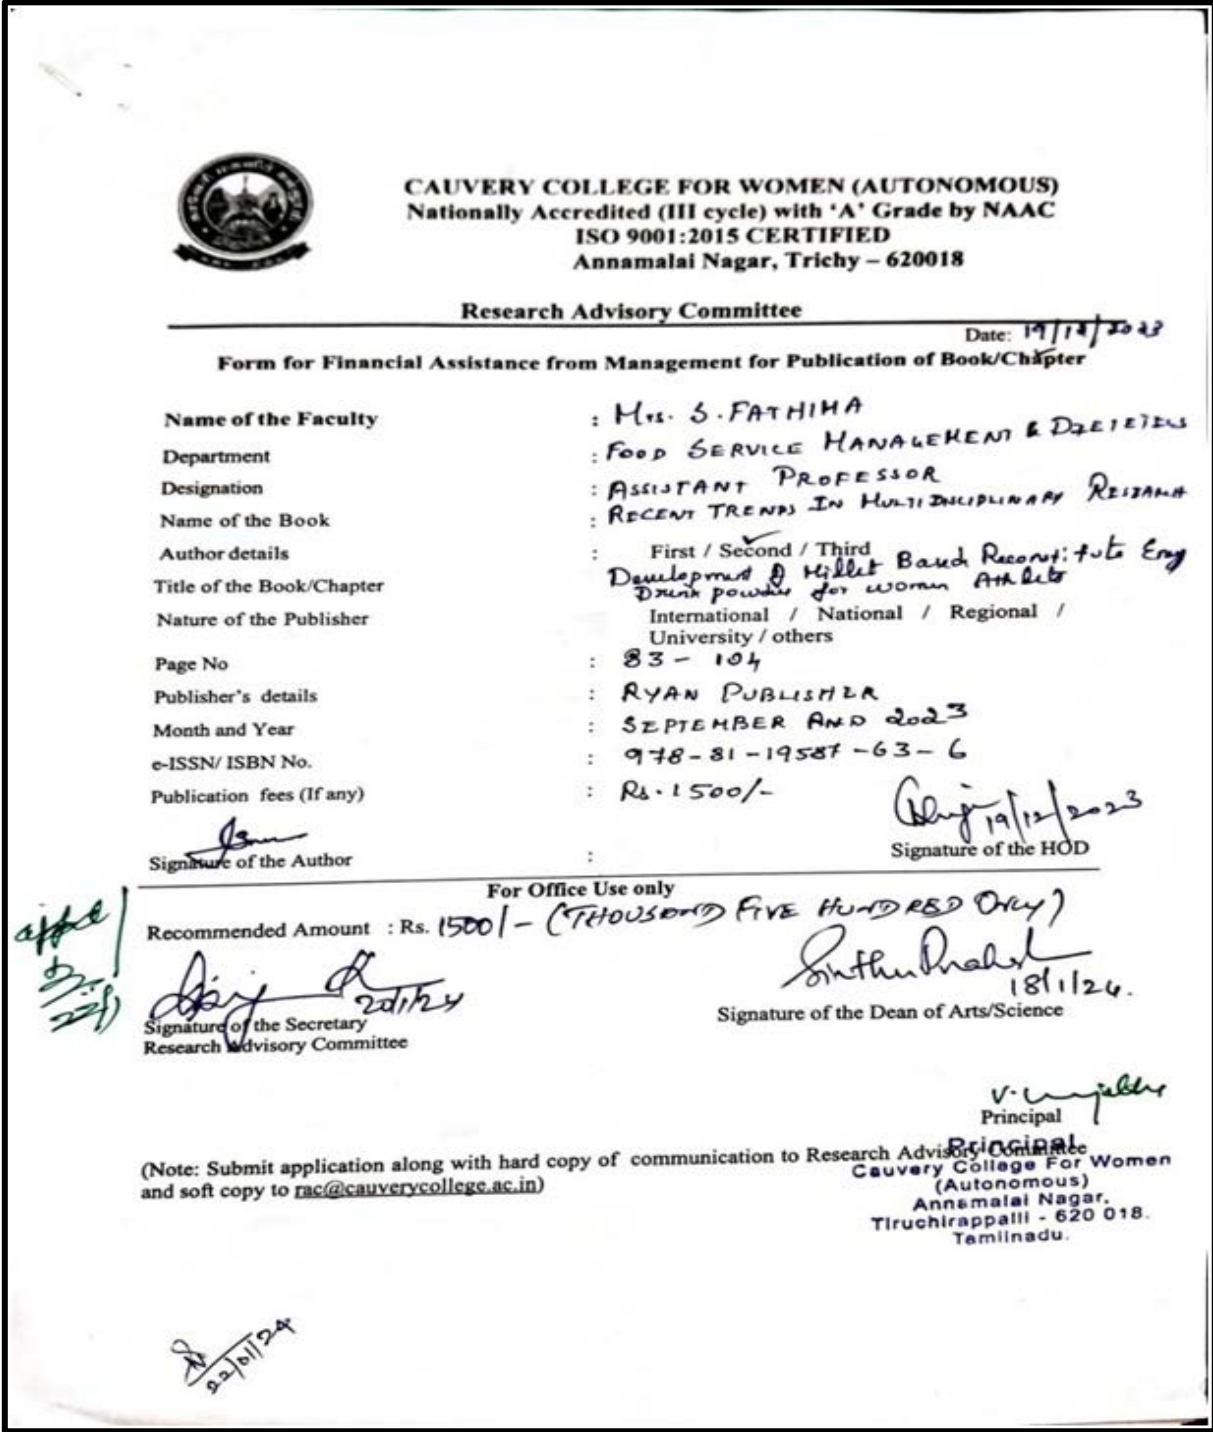 CAUVERY COLLEGE FOR WOMEN (AUTONOMOUS)
Nationally Accredited (III cycle) with ‘A’ Grade by NAAC
ISO 9001:2015 CERTIFIED
Annamalai Nagar, Trichy – 620018
Research Advisory Committee
Date: 19/12/2023
Form for Financial Assistance from Management for Publication of Book/Chapter
Name of the Faculty : Mrs. S. FATHIMA
Department : FOOD SERVICE MANAGEMENT & DIETETICS
Designation : ASSISTANT PROFESSOR
Name of the Book : RECENT TRENDS IN MULTIDISCIPLINARY RESEARCH
Author details : First / Second / Third
Title of the Book/Chapter Development of Millet Based Reconstitute Energy
Drink powder for women Athlets
Nature of the Publisher International / National / Regional /
University / others
Page No : 83 - 104
Publisher's details : RYAN PUBLISHER
Month and Year : SEPTEMBER AND 2023
e-ISSN/ ISBN No. : 978-81-19587-63-6
Publication fees (If any) : Rs. 1500/-
19/12/2023
Signature of the Author : Signature of the HOD
For Office Use only
Recommended Amount : Rs. 1500/- (THOUSAND FIVE HUNDRED ONLY)
20/1/24
18/1/24.
Signature of the Secretary Signature of the Dean of Arts/Science
Research Advisory Committee
Principal
Principal
(Note: Submit application along with hard copy of communication to Research Advisory Committee
and soft copy to rac@cauverycollege.ac.in)
Cauvery College For Women
(Autonomous)
Annamalai Nagar,
Tiruchirappalli - 620 018.
Tamilnadu.
22/01/24